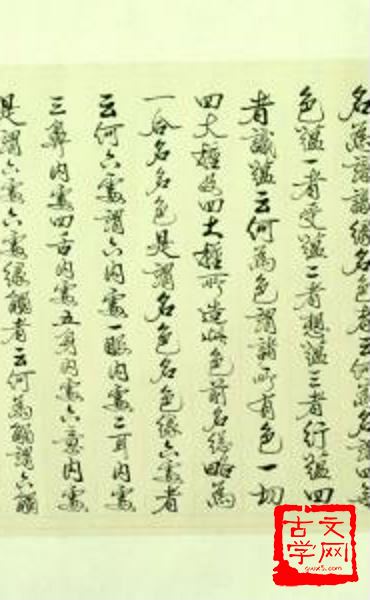 名為識識緣名色者云何為名謂四無
色蘊一者受蘊二者想蘊三者行蘊四
者識蘊云何為色謂諸所有色一切
四大種及四大種所造此色前名總略為
一合名名色是謂名色名色緣六處者
云何六處謂六內處一眼內處二耳內處
三鼻內處四舌內處五身內處六意內處
是謂六處六處緣觸者云何為觸謂六觸
古文
学网
gwx5.com